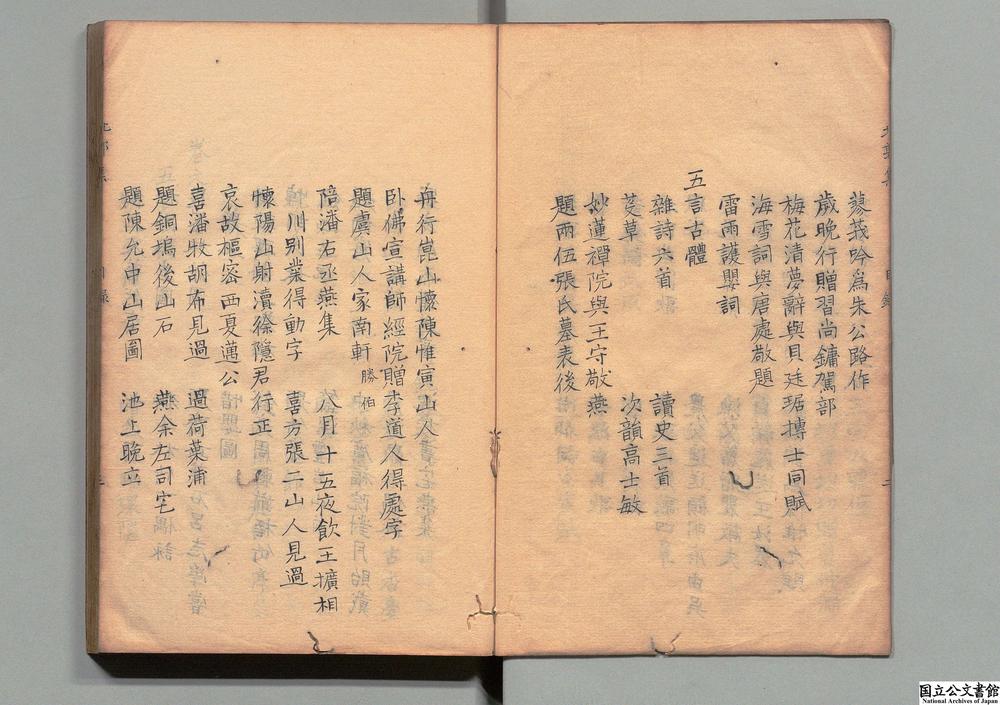 蓼莪吟爲朱公路作
歲晚行贈習尚鏞駕部
梅花清夢辭與貝廷琚摶士同賦
海雪詞與唐處敬題
雷雨護嬰詞
五言古體
雜詩六首 讀史三首
芰草 次韻高士敏
妙蓮禪院與王守敬燕
題兩伍張氏墓表後
冉行崑山懷陳惟寅山人
卧佛宣講師經院贈李道人得處字
題虞山人家南軒 勝伯
陪潘右丞燕集 八月十五夜飲王擴相
川别業得動字 喜方張二山人見過
懷陽山射瀆徐隱君行正
哀故樞密西夏邁公
喜潘牧胡布見過 過荷葉浦
題銅塢後山石 燕余左司宅
題陳允中山居圖 池上晚立
国立公文書館
National Archives of Japan